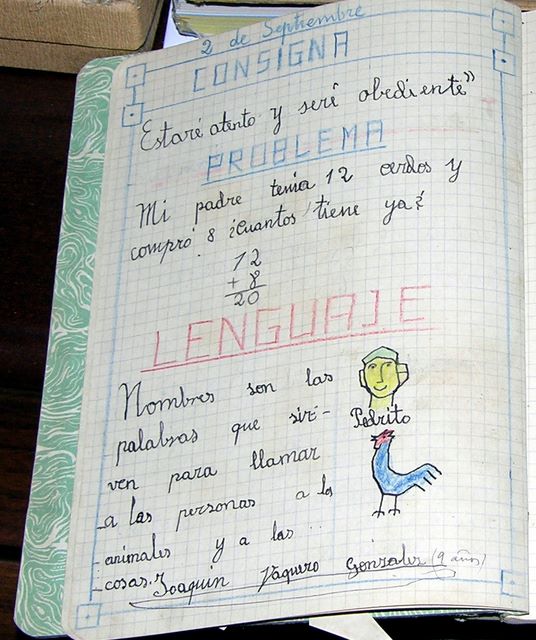 2 de Septiembre
CONSIGNA
Estaré atento y seré obediente"
PROBLEMA
Mi padre tenia 12 cerdos y
compró 8 ¿Cuantos tiene ya?
12
+ 8
20
LENGUAJE
Nombres son las
palabras que sir-
ven para llamar
a las personas a los
animales y a las
cosas.
Pedrito
Joaquin Vaquero Gonzalez (9 años)